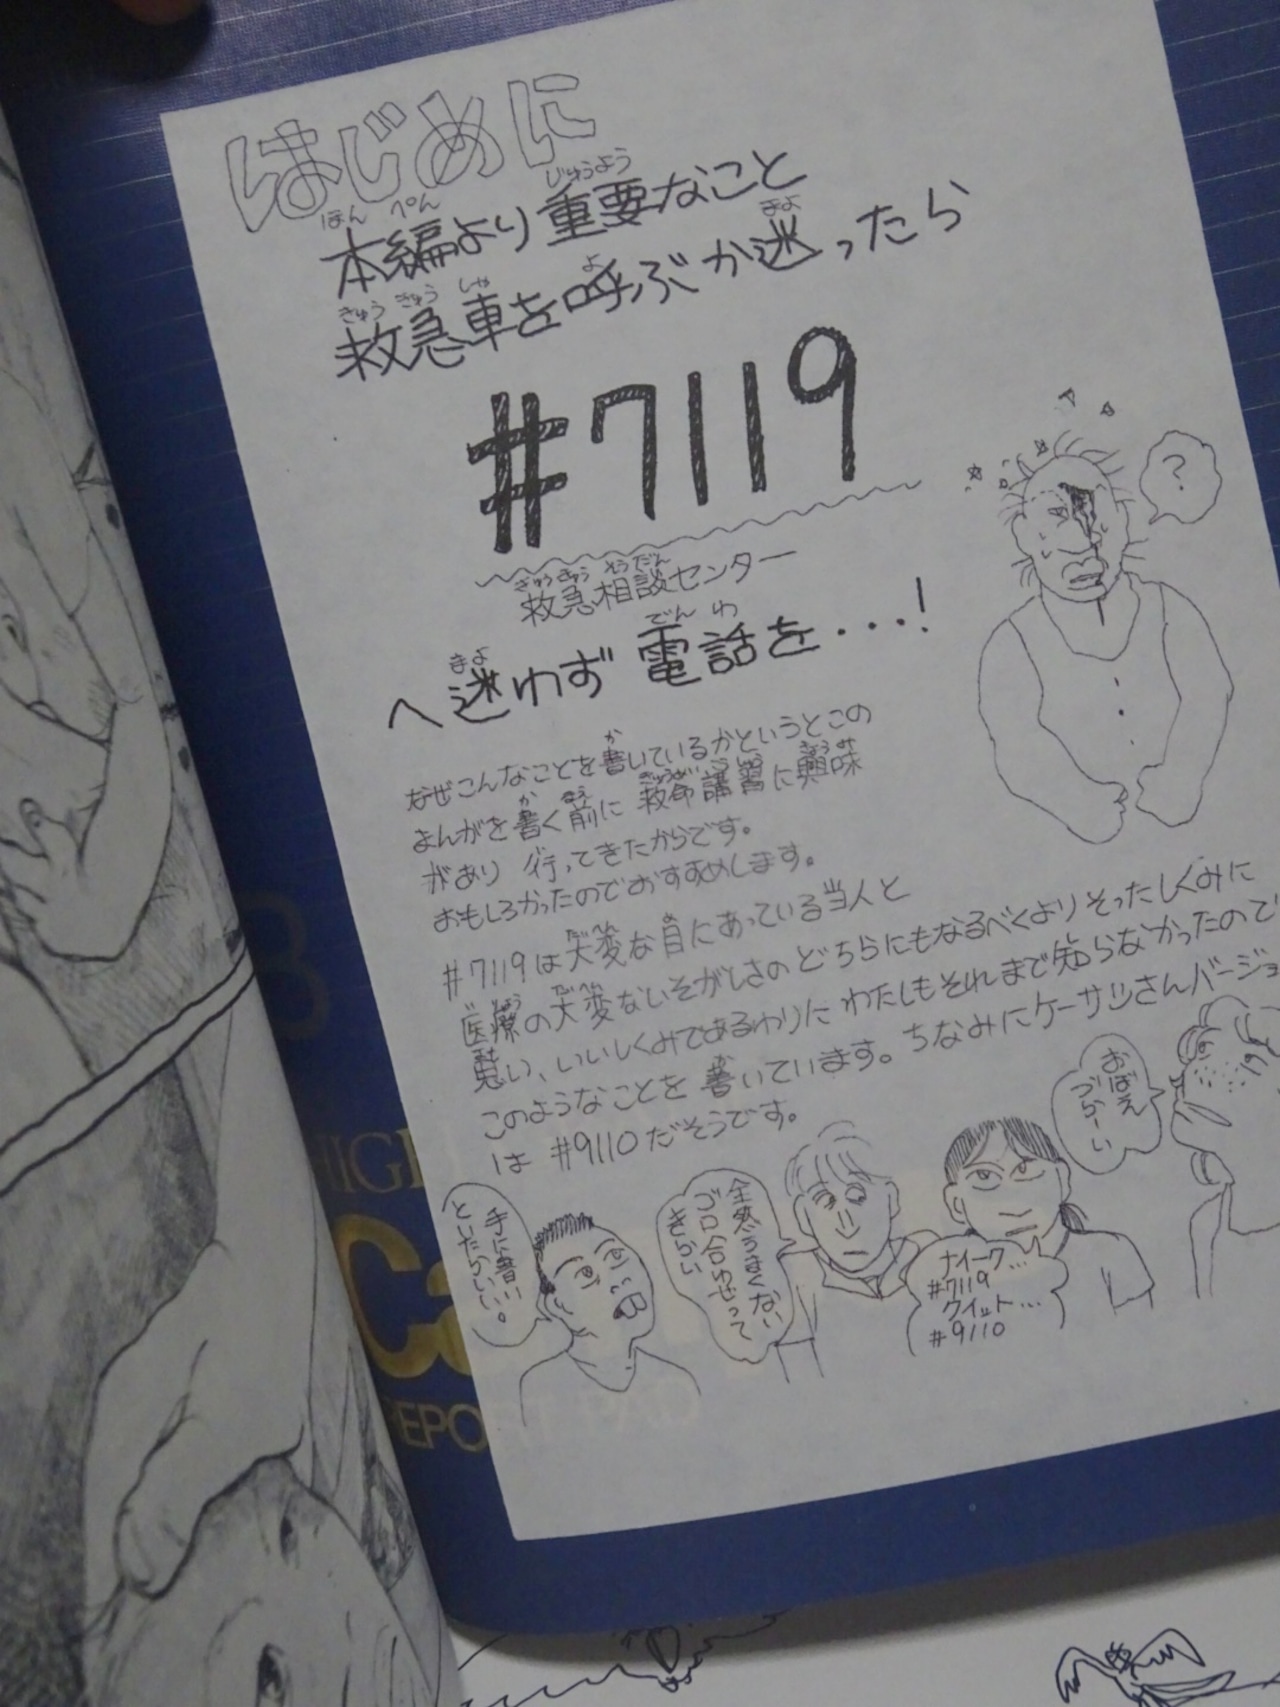 はじめに
本編より重要なこと
救急車を呼ぶか迷ったら
#7119
救急相談センター
へ迷わず電話を・・・!
?
なぜこんなことを書いているかというとこの
まんがを書く前に救命講習に興味
があり行ってきたからです。
おもしろかったのでおすすめします。
#7119は大変な目にあっている当人と
医療の大変ないそがしさのどちらにもなるべくよりそったしくみに
思い、いいしくみであるわりにわたしもそれまで知らなかったので
このようなことを書いています。ちなみにケーサツさんバージョ
は#9110だそうです。
手に書い
といたらいい。
全然うまくない
ゴロ合わせって
きらい
ナイーク...
#7119
クイット...
#9110
おぼえ
づらーい
HIGH
REPORT PAD